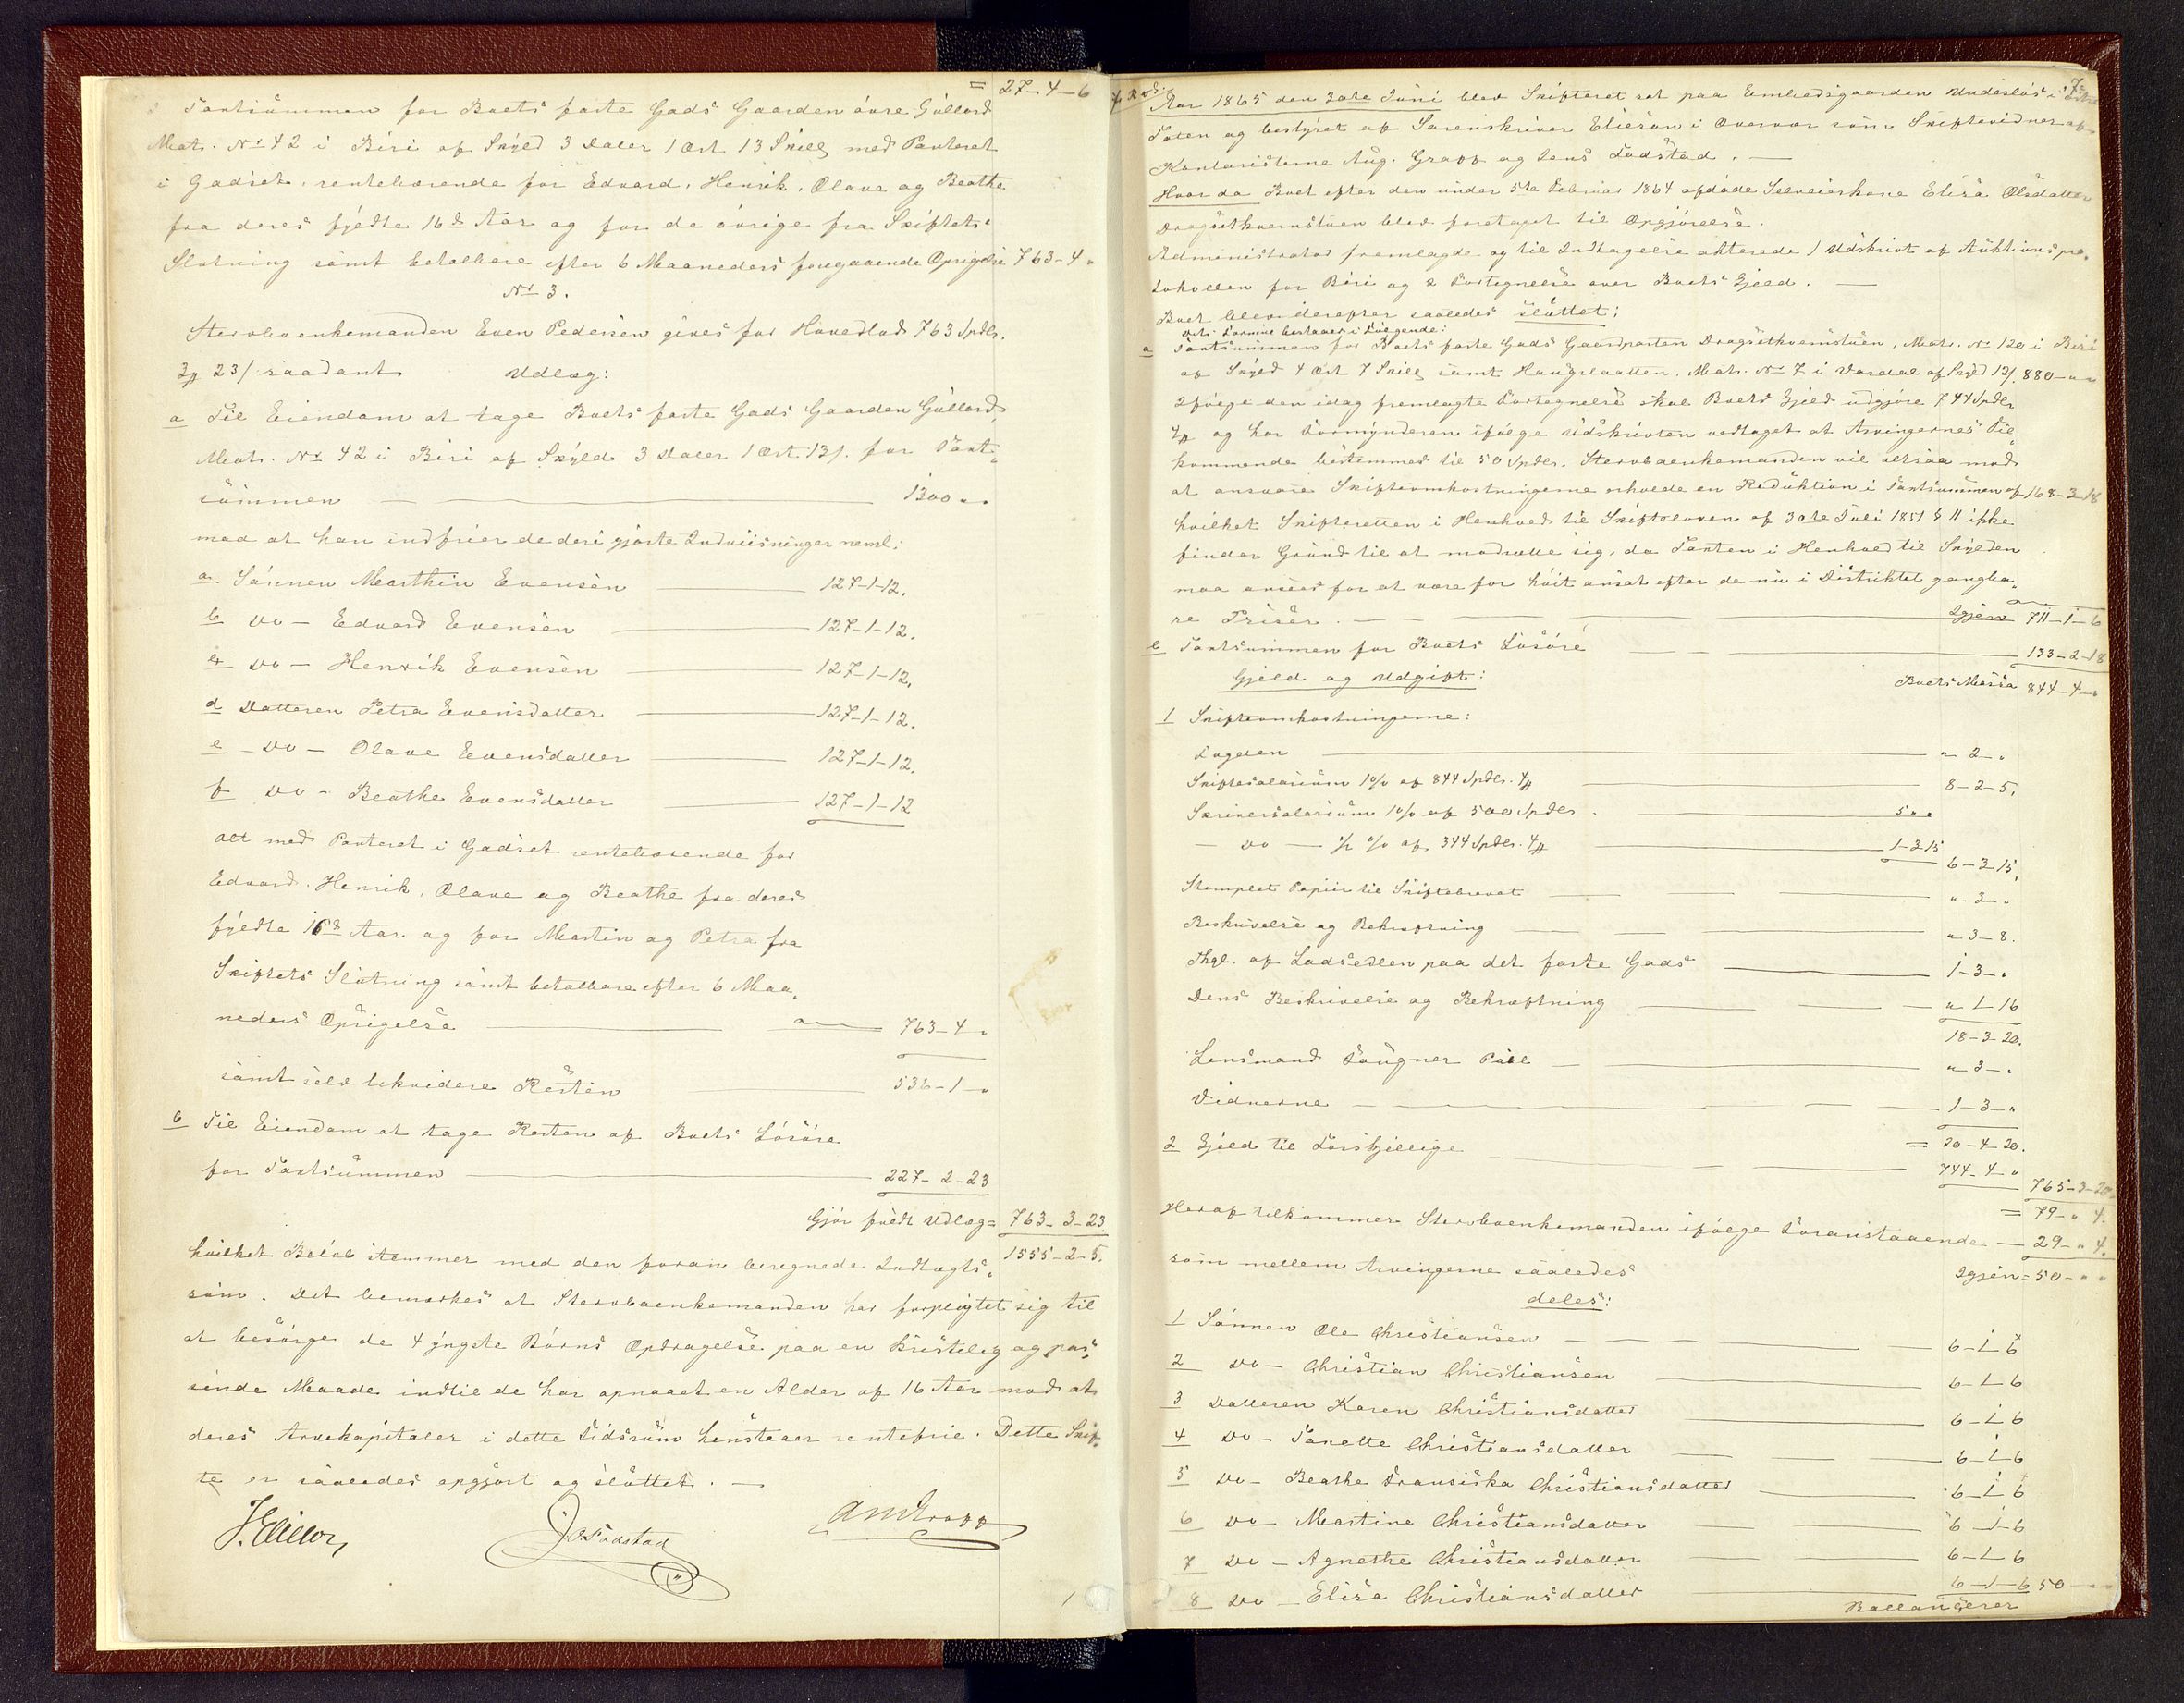 = 27-4-6
Taxtsummen for Boets faste Gods Gaarden øvre Gullord
Matr. Nr 42 i Biri af Skyld 3 Daler 1 Ort 13 Skill med Panteret
i Godset, rentebærende for Edvard, Henrik, Olave og Beathe
fra deres fyldte 16de Aar og for de øvrige fra Skiftets
Slutning samt betalbare efter 6 Maaneders foregaaende Opsigelse 763-4 "
Nr 3.
Stervboenkemanden Even Pedersen gives for Hovedlod 763 Spdlr.
3 23/ saadant Udlæg:
a Til Eiendom at tage Boets faste Gods Gaarden Gullord,
Matr. Nr 42 i Biri af Skyld 3 Daler 1 Ort 13/. for Taxt-
summen 1300 " "
mod at han indfrier de deri gjorte Indviisninger neml:
a Sønnen Marthin Evensen 127-1-12.
b Do - Edvard Evensen 127-1-12.
c Do - Henrik Evensen 127-1-12.
d Datteren Petra Evensdatter 127-1-12.
e - Do - Olave Evensdatter 127-1-12.
f Do - Beathe Evensdatter 127-1-12
alt med Panteret i Godset rentebærende for
Edvard, Henrik, Olave og Beathe fra deres
fyldte 16de Aar og for Martin og Petra fra
Skiftets Slutning samt betalbare efter 6 Maa-
neders Opsigelse 763-4 "
samt selv likvidere Resten 536-1-"
b Til Eiendom at tage Resten af Boets Løsøre
for Taxtsummen 227-2-23
Gjør fuldt Udlæg = 763-3-23.
1555-2-5.
hvilket Beløb stemmer med den foran beregnede Indtægts-
sum. Det bemærkes at Stervboenkemanden har forpligtet sig til
at besørge de 4 yngste Børns Opdragelse paa en kristelig og pas-
sende Maade indtil de har opnaaet en Alder af 16 Aar mod at
deres Arvekapitaler i dette Tidsrum henstaaer rentefrie. Dette Skif-
te er saaledes opgjort og sluttet. -
J. Elieson
J. Fodstad
Aug. Grapp
Aar 1865 den 30te Juni blev Skifteret sat paa Embedsgaarden Undesløs i Østre
Toten og bestyret af Sorenskriver Elieson i Overvær som Skiftevidner af
Kontoristerne Aug. Grapp og Jens Fodstad. -
Hvor da Boet efter den under 5te Februar 1864 afdøde Selveierkone Elisa Olsdatter
Dragsetkvernstuen blev foretaget til Opgjørelse.
Administrator fremlagde og til Indtagelse akterede 1 Udskrivt af Auktionspro-
tokollen for Biri og 2 Fortegnelse over Boets Gjeld. -
Boet blev derefter saaledes sluttet:
Dets Formue bestaaer i Følgende:
a Taxtsummen for Boets faste Gods Gaardparten Dragsetkvernstuen, Matr. Nr 120 i Biri
af Skyld 4 Ort 7 Skill samt Haugslaatten, Matr. Nr 7 i Vardal af Skyld 12/. 880-"-"
Ifølge den idag fremlagte Fortegnelse skal Boets Gjeld udgjøre 744 Spdlr
4 og har Formynderen ifølge Udskrivten vedtaget at Arvingernes Til-
kommende bestemmes til 50 Spdlr. Stervboenkemanden vil altsaa mod
at ansvare Skifteomkostningerne erholde en Reduktion i Taxtsummen af 168-3-18
hvilket Skifteretten i Henhold til Skifteloven af 30te Juli 1851 § 11 ikke
finder Grund til at modsætte sig, da Taxten i Henhold til Skylden
maa ansees for at være for høit ansat efter de nu i Distriktet gangba-
re Priser. - Igjen 711-1-6
b Taxtsummen for Boets Løsøre 133-2-18
Boets Massa 844-4-"
Gjeld og Udgift:
1 Skifteomkostningerne:
Logden " 2 - "
Skiftesalarium 1% af 844 Spdlr. 4 8-2-5.
Skriversalarium 1% af 500 Spdlr 5 " "
- Do - ½ % af 344 Spdlr. 4 1-3 15
6-3-15.
Stemplet Papiir til Skiftebrevet " 3 - "
Beskrivelse og Bekræftning " 3-8.
Thgl. af Lodsedlen paa det faste Gods 1-3-"
Dens Beskrivelse og Bekræftning " 1-16
18-3-20.
Lensmand Faugner " 3 - "
Vidnerne 1-3-"
= 20-4-20.
2 Gjeld til Forskjellige 744-4-"
765-3-20.
= 79-" 4.
Heraf tilkommer Stervboenkemanden ifølge Foranstaaende - 29-" 4.
Igjen = 50-" "
som mellem Arvingerne saaledes
deles:
1 Sønnen Ole Christiansen 6-1-6
2 Do - Christian Christiansen 6-1-6
3 Datteren Karen Christiansdatter 6-1-6
4 Do - Tonette Christiansdatter 6-1-6
5 Do - Beathe Fransiska Christiansdatter 6-1-6
6 Do - Martine Christiansdatter 6-1-6
7 Do - Agnethe Christiansdatter 6-1-6
8 Do - Elisa Christiansdatter 6-1-6 50 - "
Ballanserer